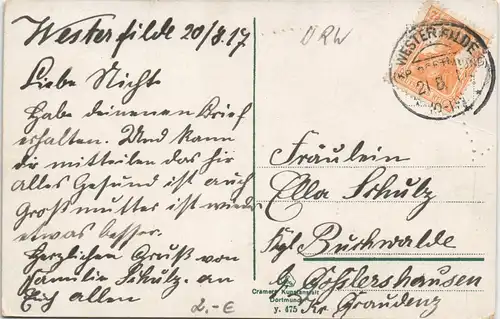 Westerfilde 20/8.17
Liebe Nichte
Habe deinenen Brief
erhalten. Und kann
dir mitteilen das hir
alles Gesund ist auch
Großmutter ist wieder
etwas besser.
Herzlichen Gruß von
Familie Schulz. an
Euch allen
2.-€
DRW
WESTERFILDE
Fräulein
Ella Schulz
Kgl Buchwalde
b Goßlershausen
Kr. Graudenz
Cramers Kunstanstalt
Dortmund
y. 475